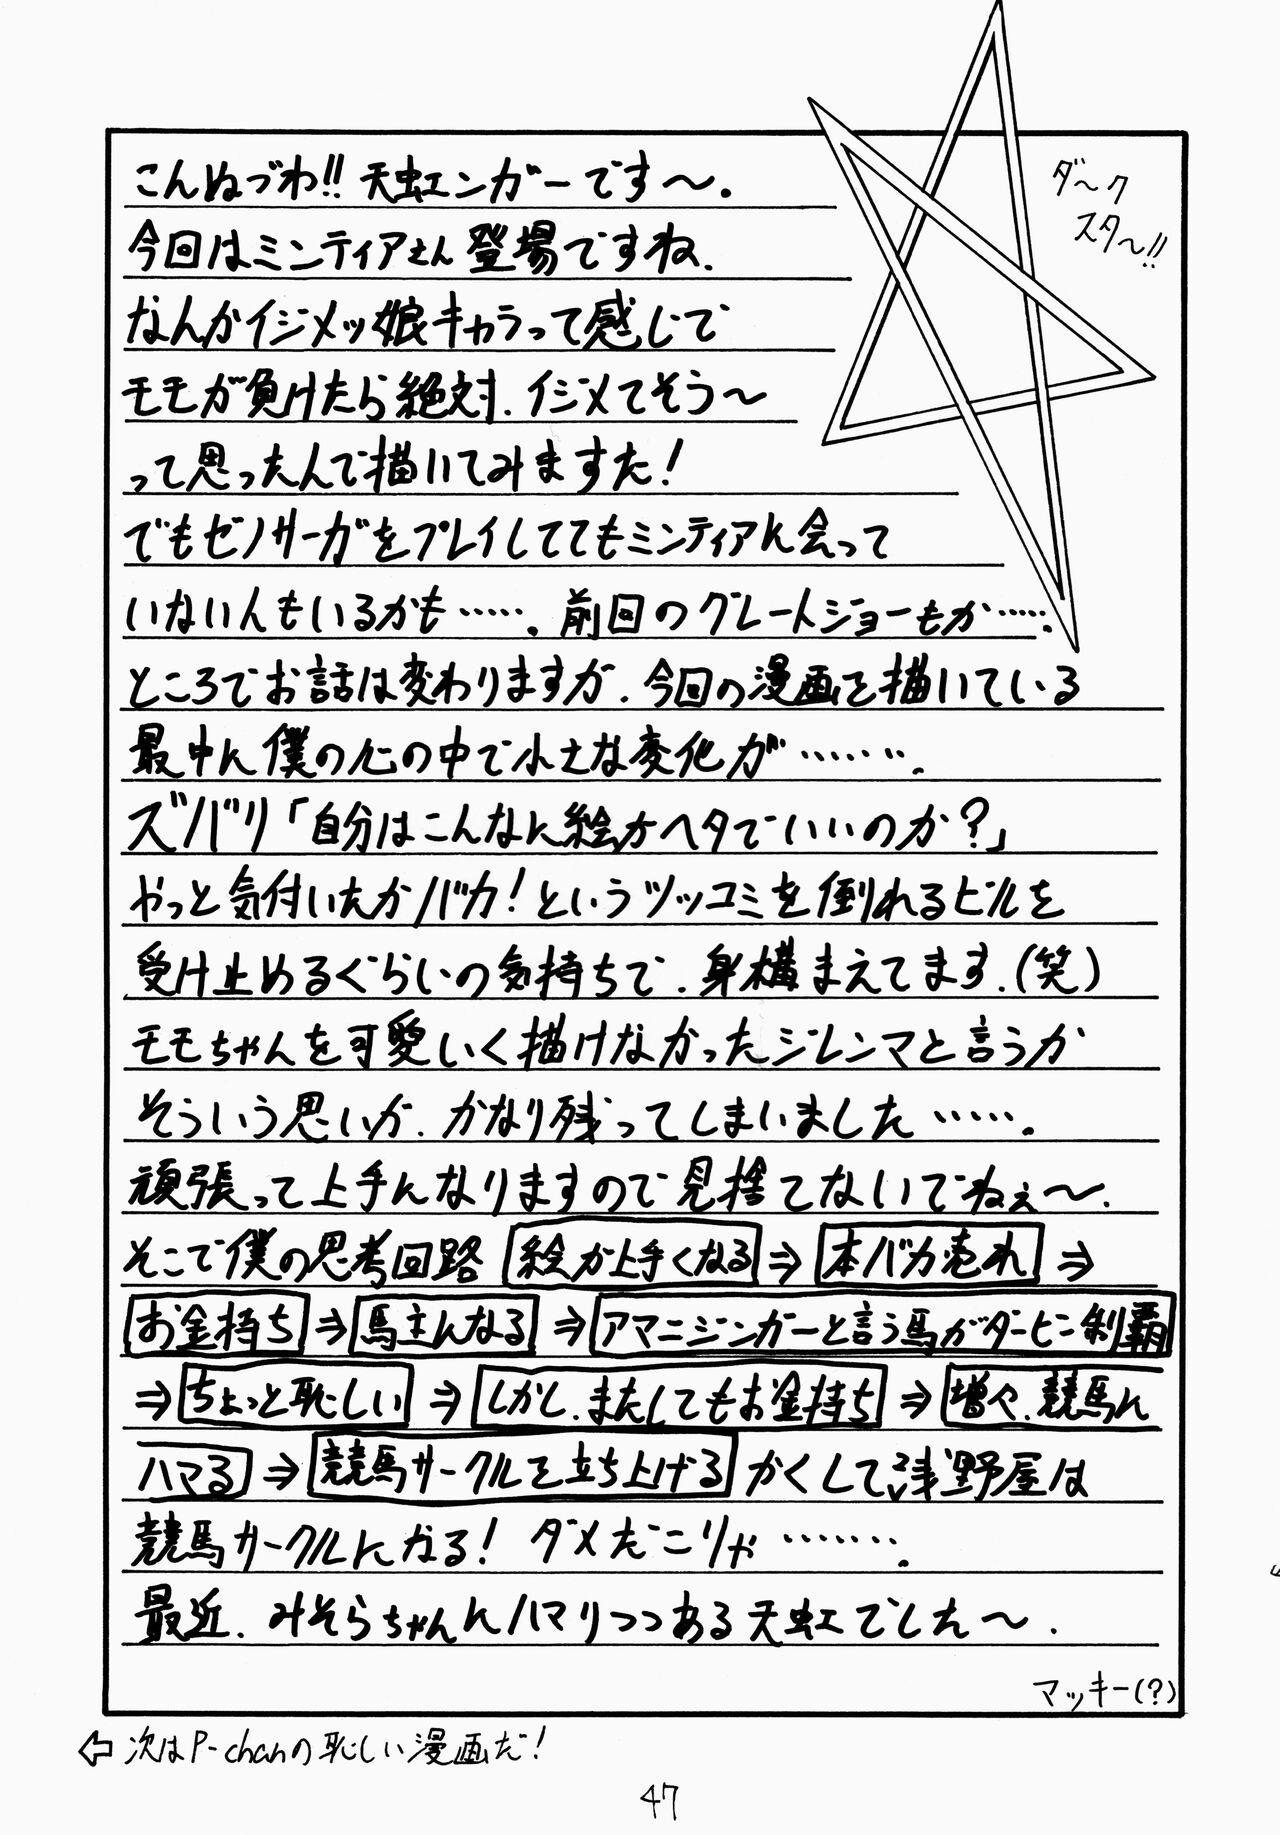 こんぬづわ!! 天虹エンガーです〜.
ダ〜ク
スタ〜!!
今回はミンティアさん登場ですね.
なんかイジメッ娘キャラって感じで
モモが負けたら絶対.イジメてそう〜
って思ったんで描いてみますた!
でもゼノサーガをプレイしててもミンティアに会って
いない人もいるかも……. 前回のグレートジョーもか…….
ところでお話は変わりますが.今回の漫画を描いている
最中に僕の心の中で小さな変化が…….
ズバリ「自分はこんなに絵がヘタでいいのか?」
やっと気付いたかバカ!というツッコミを倒れるビルを
受け止めるぐらいの気持ちで.身構まえてます.(笑)
モモちゃんを可愛いく描けなかったジレンマと言うか
そういう思いが.かなり残ってしまいました…….
頑張って上手になりますので見捨てないでねぇ〜.
そこで僕の思考回路 絵が上手くなる ⇒ 本バカ売れ ⇒
お金持ち ⇒ 馬主になる ⇒ アマニジンガーと言う馬がダービー制覇
⇒ ちょっと恥しい ⇒ しかし.またしてもお金持ち ⇒ 増々.競馬に
ハマる ⇒ 競馬サークルを立ち上げる かくして浅野屋は
競馬サークルになる! ダメだこりゃ…….
最近.みそらちゃんにハマりつつある天虹でした〜.
マッキー(?)
⇦ 次はP-chanの恥しい漫画だ!
47